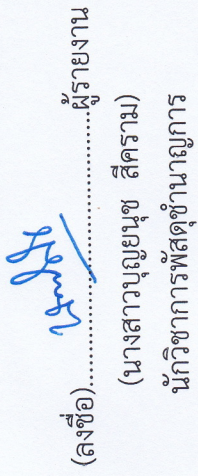 (ลงชื่อ)................................ผู้รายงาน
(นางสาวบุญยนุช สีคราม)
นักวิชาการพัสดุชำนาญการ